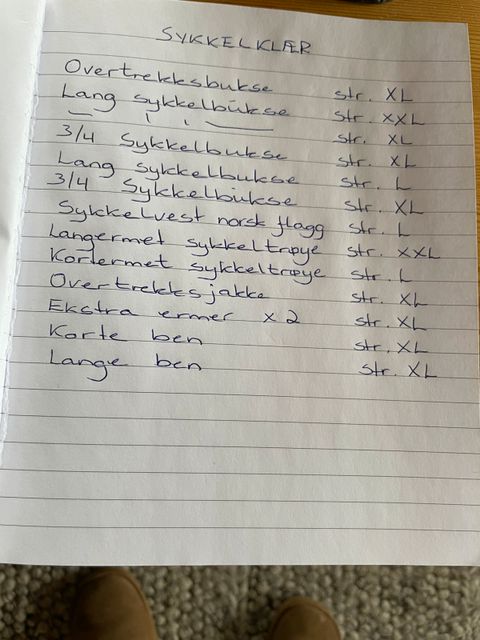 SYKKELKLÆR
Overtrekksbukse str. XL
Lang sykkelbukse str. XXL
— ı , —— str. XL
3/4 Sykkelbukse str. XL
Lang sykkelbukse str. L
3/4 Sykkelbukse str. XL
Sykkelvest norsk flagg str. L
Langermet sykkeltrøye str. XXL
Kortermet sykkeltrøye str. L
Overtrekksjakke str. XL
Ekstra ermer x 2 str. XL
Korte ben str. XL
Lange ben str. XL